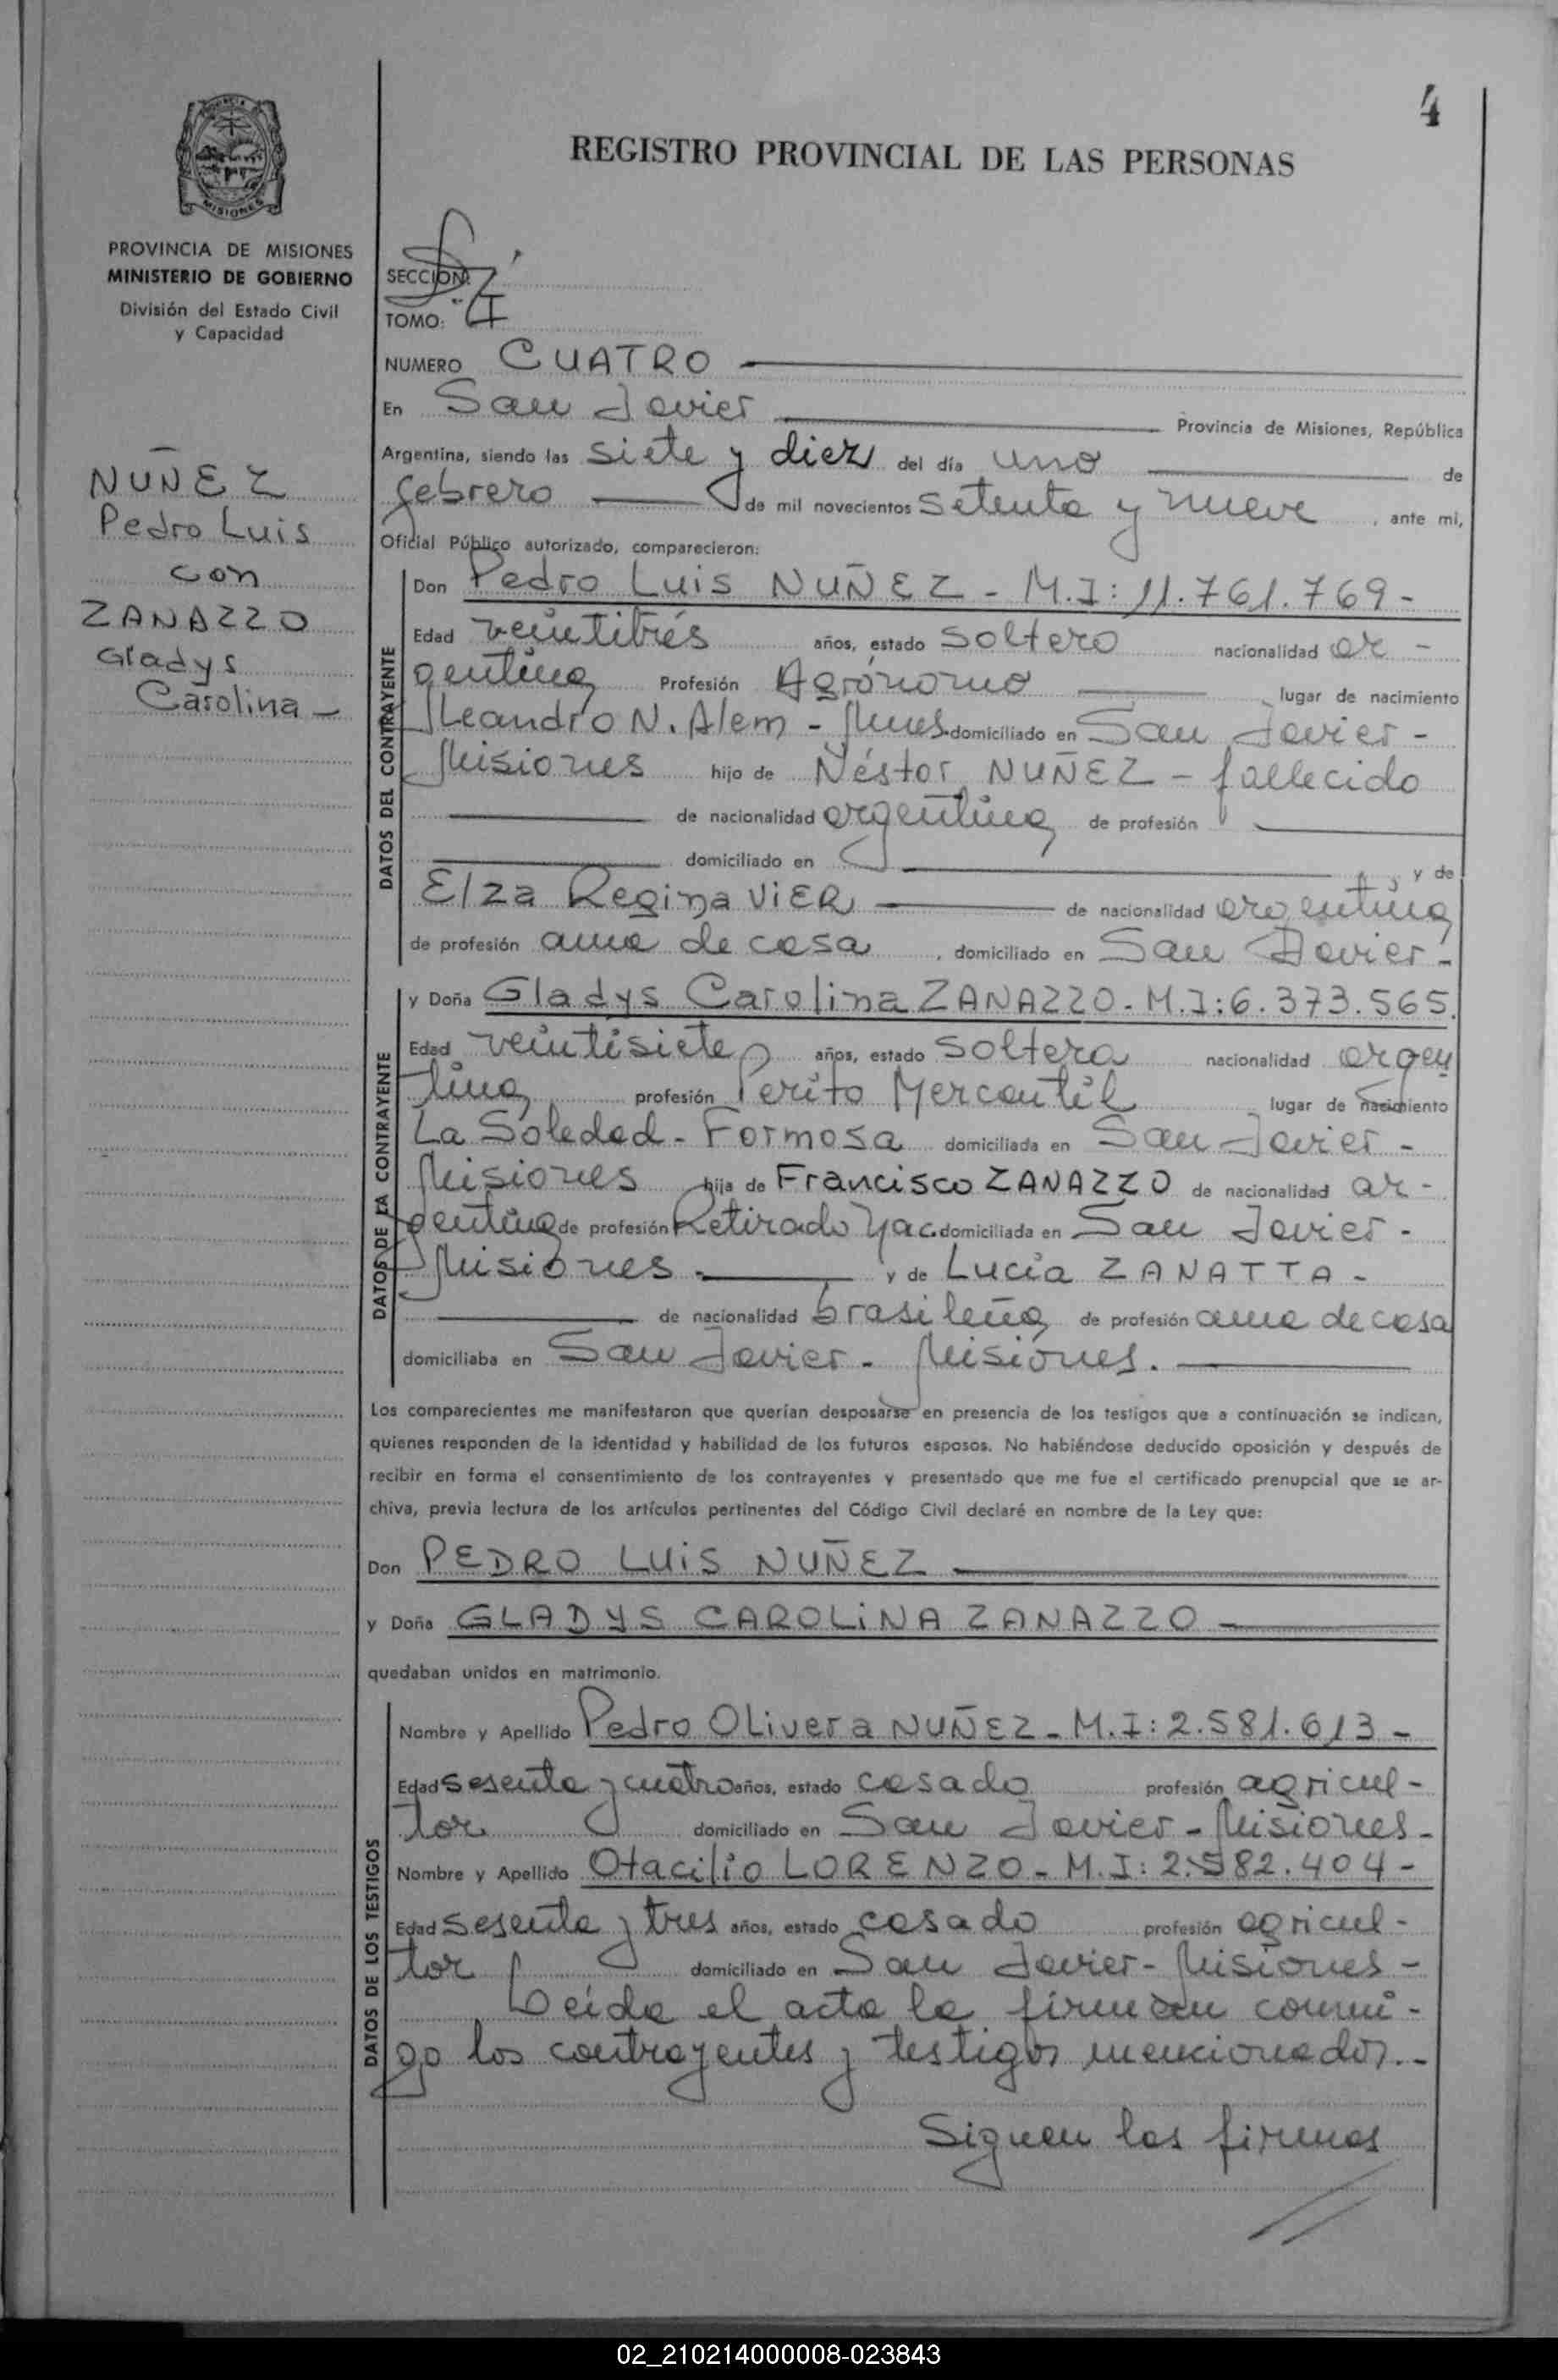 4
REGISTRO PROVINCIAL DE LAS PERSONAS
MISIONES
PROVINCIA DE MISIONES
MINISTERIO DE GOBIERNO
División del Estado Civil
y Capacidad
NUÑEZ
Pedro Luis
con
ZANAZZO
Gladys
Carolina -
SECCION:
TOMO: I
NUMERO CUATRO
En San Javier Provincia de Misiones, República
Argentina, siendo las siete y diez del día uno de
febrero de mil novecientos setenta y nueve , ante mi,
Oficial Público autorizado, comparecieron:
DATOS DEL CONTRAYENTE
Don Pedro Luis NUÑEZ - M.I: 11.761.769 -
Edad veintitrés años, estado soltero nacionalidad ar -
gentina Profesión Agrónomo lugar de nacimiento
Leandro N. Alem - Mnes. domiciliado en San Javier -
Misiones hijo de Néstor NUÑEZ - fallecido
de nacionalidad argentina de profesión
domiciliado en , y de
Elza Regina VIER de nacionalidad argentina
de profesión ama de casa , domiciliado en San Javier -
DATOS DE LA CONTRAYENTE
y Doña Gladys Carolina ZANAZZO - M.I: 6.373.565.
Edad veintisiete años, estado soltera nacionalidad argen
tina profesión Perito Mercantil lugar de nacimiento
La Soledad - Formosa domiciliada en San Javier -
Misiones hija de Francisco ZANAZZO de nacionalidad ar -
gentina de profesión Retirado Nac. domiciliada en San Javier -
Misiones - y de Lucía ZANATTA -
de nacionalidad brasileña de profesión ama de casa
domiciliaba en San Javier - Misiones.
Los comparecientes me manifestaron que querían desposarse en presencia de los testigos que a continuación se indican,
quienes responden de la identidad y habilidad de los futuros esposos. No habiéndose deducido oposición y después de
recibir en forma el consentimiento de los contrayentes y presentado que me fue el certificado prenupcial que se ar-
chiva, previa lectura de los artículos pertinentes del Código Civil declaré en nombre de la Ley que:
Don PEDRO LUIS NUÑEZ
y Doña GLADYS CAROLINA ZANAZZO
quedaban unidos en matrimonio.
DATOS DE LOS TESTIGOS
Nombre y Apellido Pedro Olivera NUÑEZ - M.I: 2.581.613 -
Edad sesenta y cuatro años, estado casado profesión agricul -
tor domiciliado en San Javier - Misiones -
Nombre y Apellido Otacilio LORENZO - M.I: 2.582.404 -
Edad sesenta y tres años, estado casado profesión agricul -
tor domiciliado en San Javier - Misiones -
Leída el acta la firman conmi -
go los contrayentes y testigos mencionados. -
Siguen las firmas
//
02_210214000008-023843